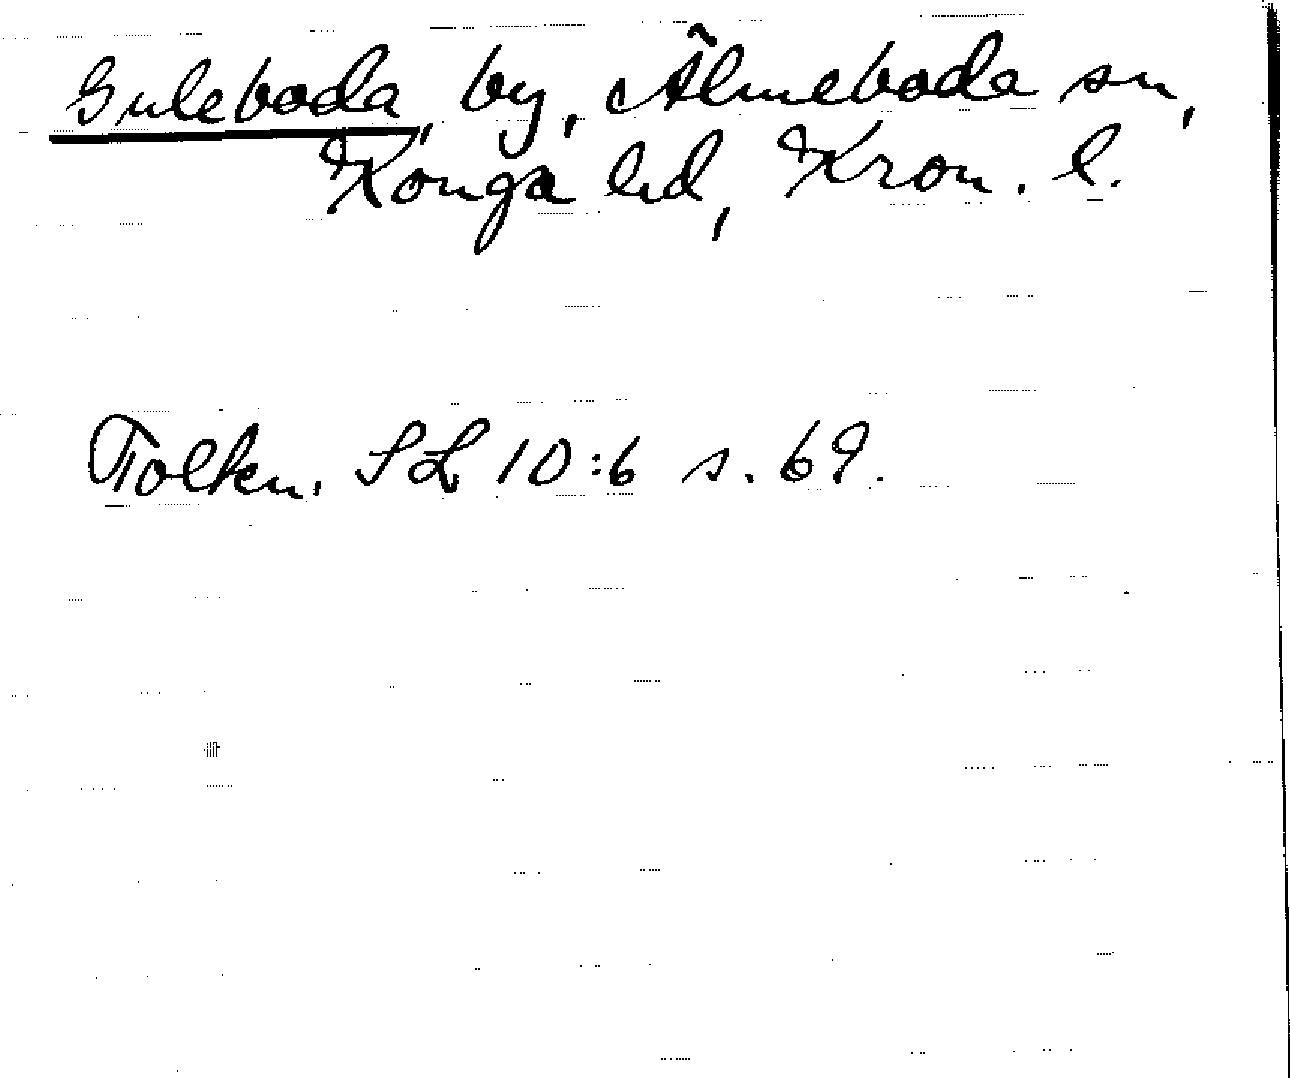 Guleboda, by, Älmeboda sn,
Konga hd, Kron. l.
Tolkn. SL 10:6 s. 69.